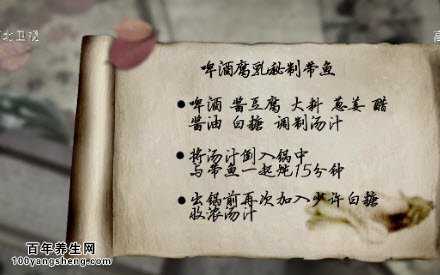 北卫视
高
啤酒腐乳秘制带鱼
●啤酒 酱豆腐 大料 葱姜 醋
酱油 白糖 调制汤汁
●将汤汁倒入锅中
与带鱼一起炖15分钟
●出锅前再次加入少许白糖
收浓汤汁
百年养生网
100yangsheng.com